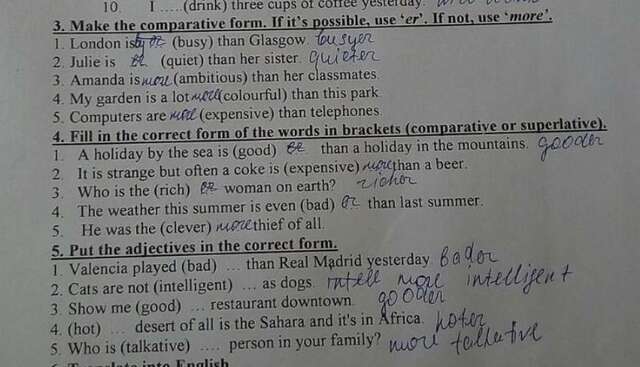 10. I .....(drink) three cups of coffee yesterday.
3. Make the comparative form. If it's possible, use 'er'. If not, use 'more'.
1. London is er (busy) than Glasgow. busyer
2. Julie is er (quiet) than her sister. quieter
3. Amanda is more (ambitious) than her classmates.
4. My garden is a lot more (colourful) than this park.
5. Computers are more (expensive) than telephones.
4. Fill in the correct form of the words in brackets (comparative or superlative).
1. A holiday by the sea is (good) er than a holiday in the mountains. gooder
2. It is strange but often a coke is (expensive) more than a beer.
3. Who is the (rich) er woman on earth? richer
4. The weather this summer is even (bad) er than last summer.
5. He was the (clever) more thief of all.
5. Put the adjectives in the correct form.
1. Valencia played (bad) … than Real Madrid yesterday. bader
2. Cats are not (intelligent) … as dogs. intell more intelligent
3. Show me (good) … restaurant downtown. gooder
4. (hot) .... desert of all is the Sahara and it's in Africa. hoter
5. Who is (talkative) .... person in your family? more talkative
6. Translate into English